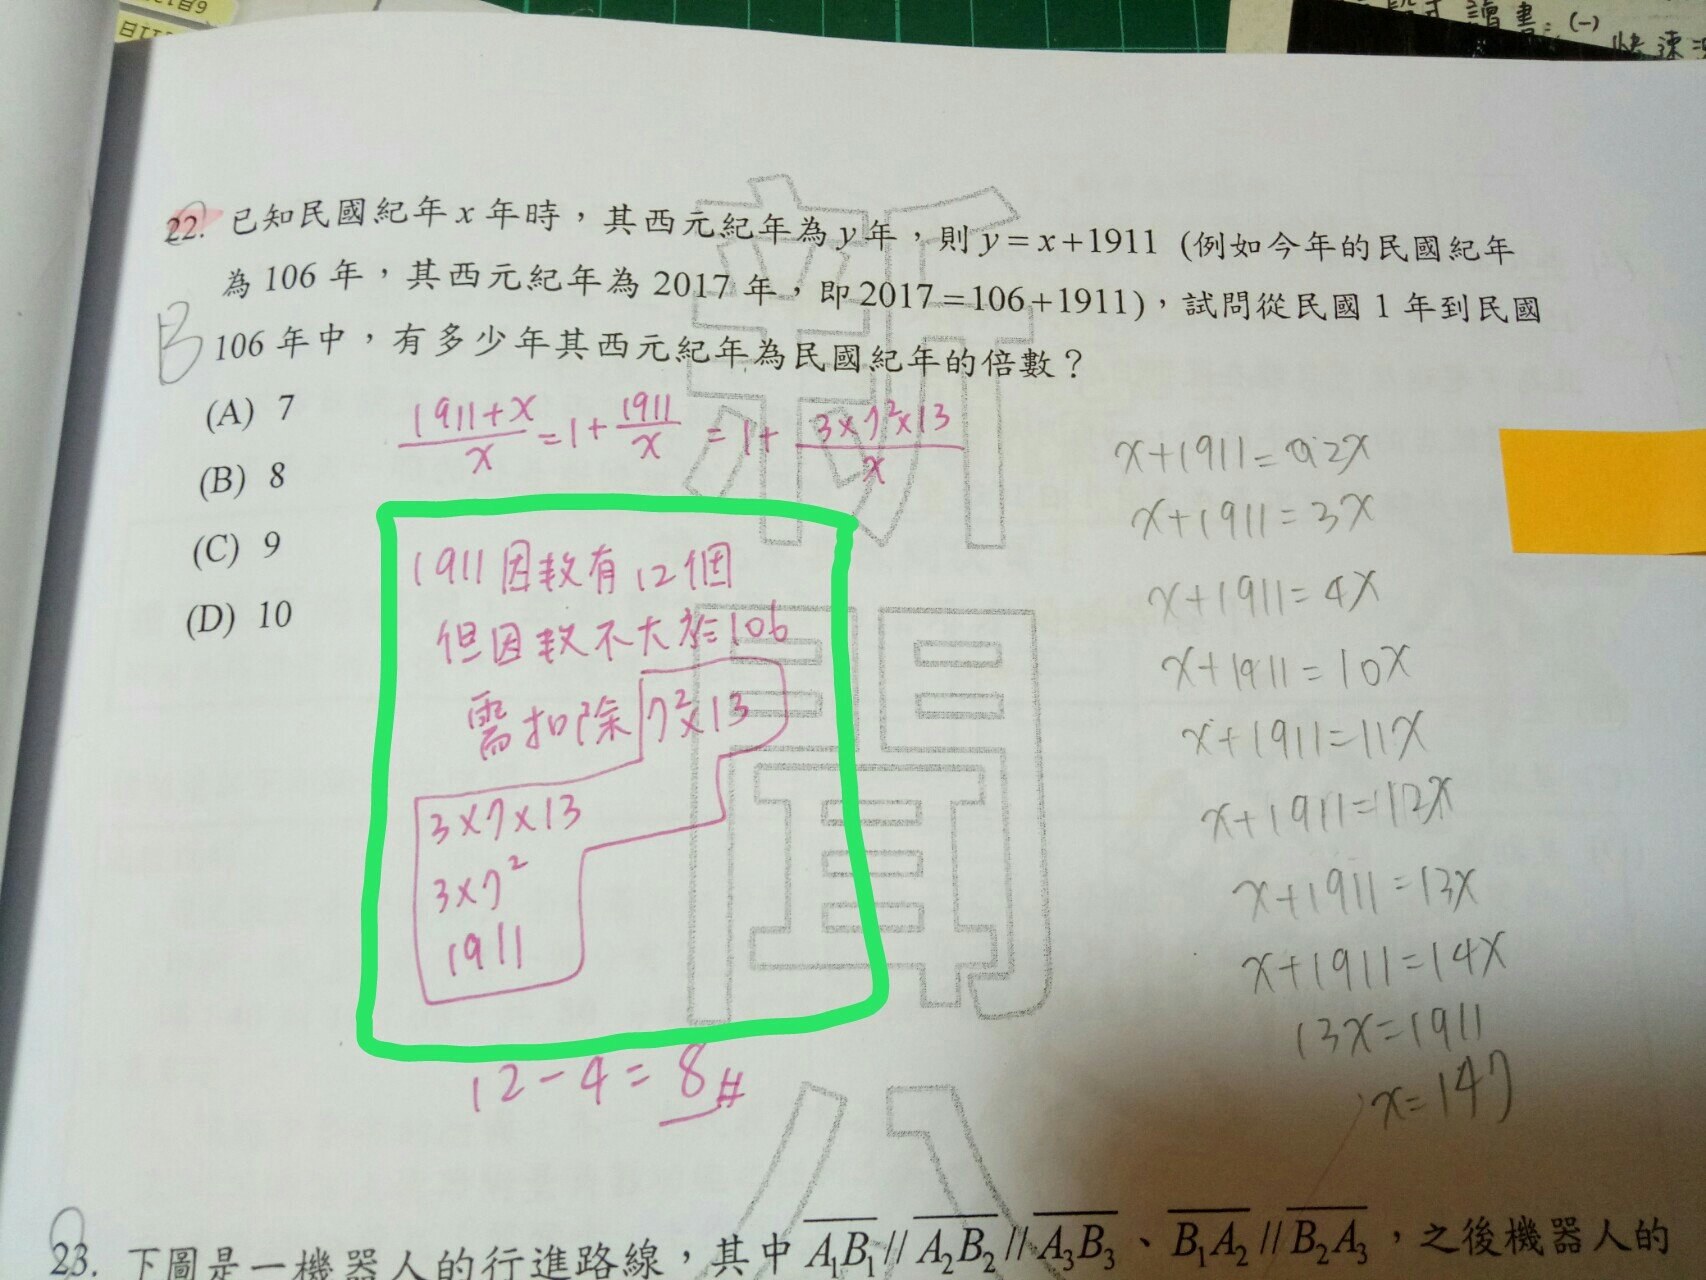 段式讀書：(一)
快速
22. 已知民國紀年 x 年時，其西元紀年為 y 年，則 y = x+1911 (例如今年的民國紀年
為 106 年，其西元紀年為 2017 年，即 2017 = 106+1911)，試問從民國 1 年到民國
106 年中，有多少年其西元紀年為民國紀年的倍數？
B
(A) 7
(B) 8
(C) 9
(D) 10
(1911+x)/x = 1 + 1911/x = 1 + (3×7²×13)/x
1911因数有12個
但因数不大於106
需扣除 7²×13
3×7×13
3×7²
1911
12-4=8#
x+1911=2x
x+1911=3x
x+1911=4x
x+1911=10x
x+1911=11x
x+1911=112x
x+1911=13x
x+1911=14x
13x=1911
x=147
新
聞
23. 下圖是一機器人的行進路線，其中 A₁B₁ // A₂B₂ // A₃B₃、B₁A₂ // B₂A₃，之後機器人的